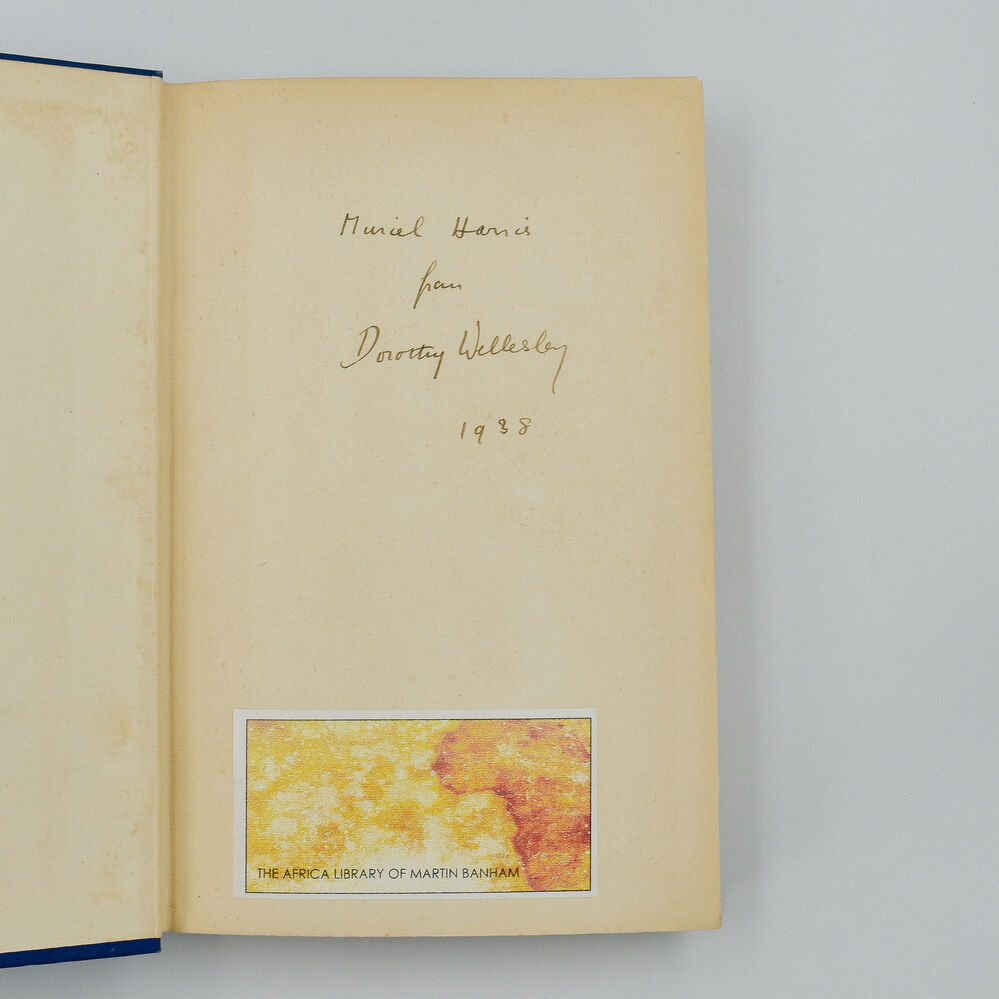 Muriel Harris
from
Dorothy Wellesley
1938
THE AFRICA LIBRARY OF MARTIN BANHAM